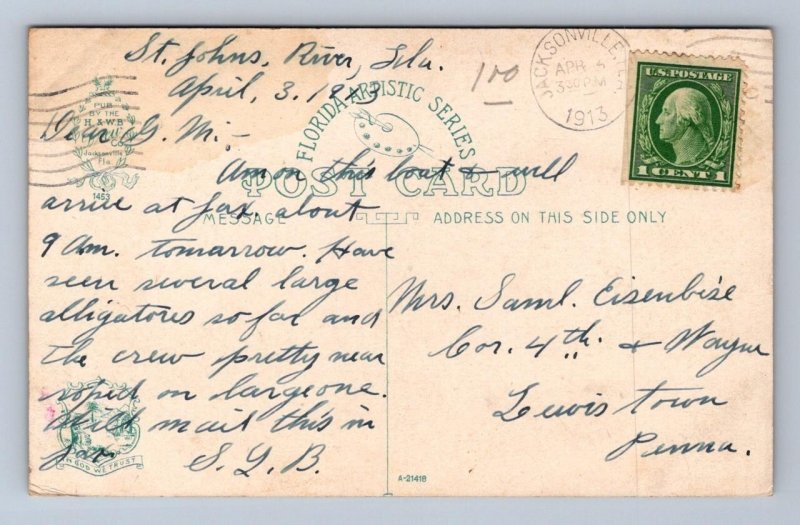 St. Johns, River, Fla.
April, 3. 1913
100
JACKSONVILLE, FLA
APR 5
330 P.M
1913
U.S. POSTAGE
1 CENT 1
PUB
BY THE
H. & W.B.
Jacksonville
Fla.
1453
FLORIDA ARTISTIC SERIES
POST CARD
MESSAGE
ADDRESS ON THIS SIDE ONLY
Dear G. M;-
Am on this boat & will
arrive at Jax, about
9 Am. tomorrow. Have
seen several large
alligatores so far and
the crew pretty near
roped on large one.
Will mail this in
Jax S. Y. B.
IN GOD WE TRUST
Mrs. Saml. Eisenbise
Cor. 4th. & Wayne
Lewistown
Penna.
A-21418